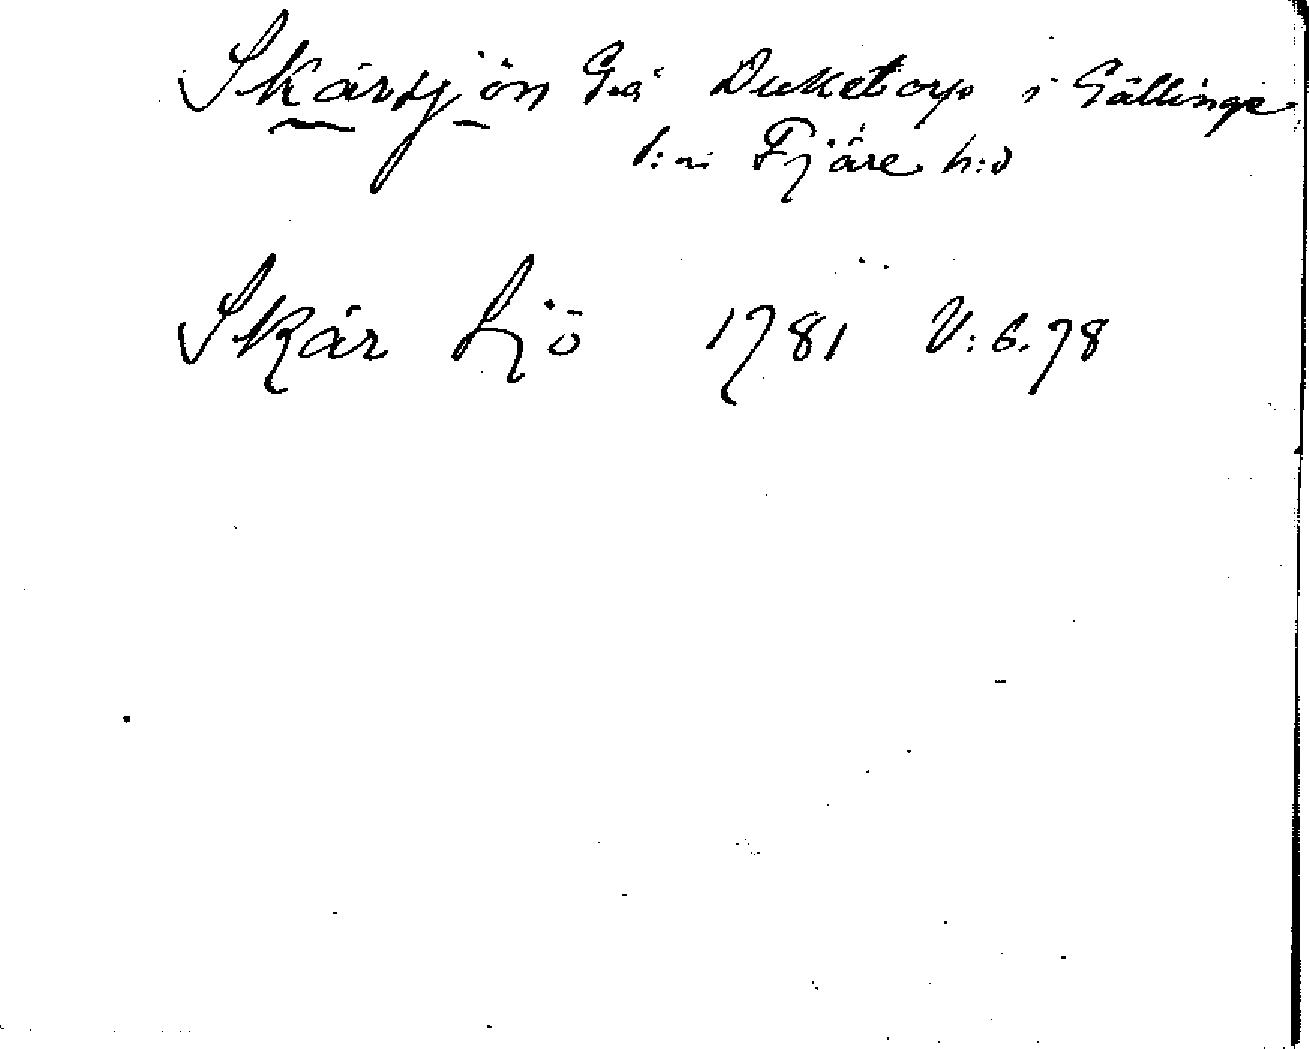 Skärsjön Gå Duketorp i Gällinge
s:n Fjäre h:d
Skär Sjö 1781 V:6.78